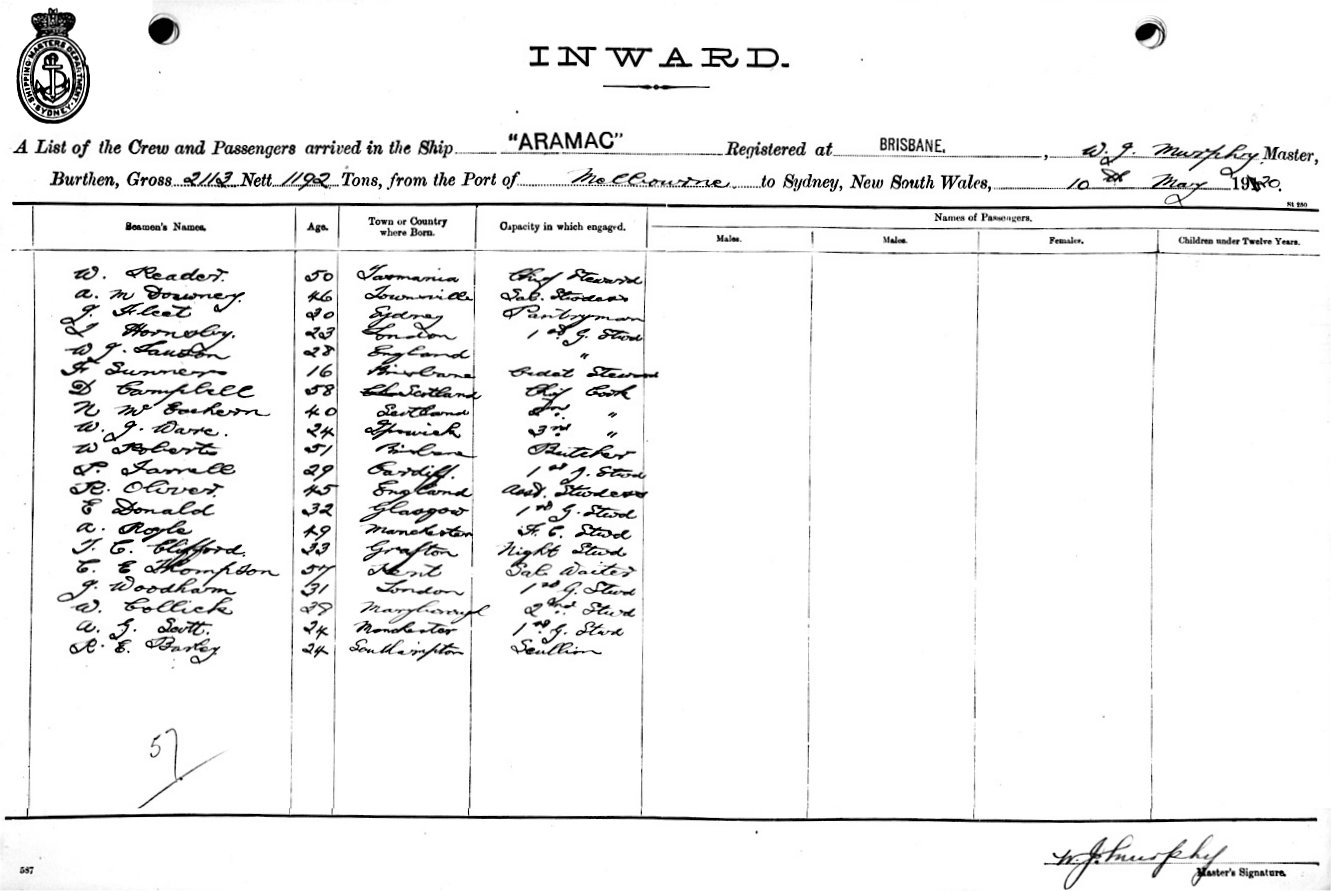 SHIPPING MASTERS DEPARTMENT. SYDNEY
INWARD.
A List of the Crew and Passengers arrived in the Ship "ARAMAC" Registered at BRISBANE, W. J. Murphy Master,
Burthen, Gross 2113 Nett 1192 Tons, from the Port of Melbourne to Sydney, New South Wales, 10th May 1920.
St 280
Seamen's Names. Age. Town or Country where Born. Capacity in which engaged. Names of Passengers.
Males. Males. Females. Children under Twelve Years.
W. Reader. 50 Tasmania Chief Steward
A. M Downey. 46 Townsville Sal. Stwdess
J. Fleet 20 Sydney Pantryman
Hornsby. 23 London 1st G. Stwd
W J. Lawson 28 England "
F Sunners 16 Brisbane Cadet Steward
D Campbell 58 Scotland Chief Cook
N McEachern 40 Scotland 2nd "
W. J. Ware. 24 Ipswich 3rd "
W Roberts 51 Brisbane Butcher
P. Farrell 29 Cardiff. 1st G. Stwd
R. Oliver. 45 England Asst. Stwdess
E Donald 32 Glasgow 1st G. Stwd
A. Royle 49 Manchester F. C. Stwd
T. C. Clifford. 33 Grafton Night Stwd
C. E Thompson 57 Kent Sal Waiter
J. Woodham 31 London 1st G. Stwd
W. Collick 28 Maryborough 2nd Stwd
A. G. Scott. 24 Manchester 1st G. Stwd
R. E. Barley 24 Southampton Scullion
57
W. J. Murphy
587 Master's Signature.